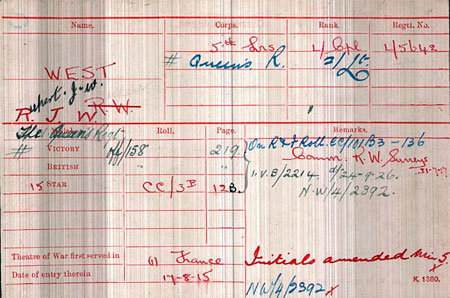 Name. Corps. Rank. Regtl. No.
5th Lrs L/Cpl L/5643
# Queen's R. 2/Lt.
WEST
R. J. W. R.W.
Roll. Page. Remarks.
# VICTORY 219 On R & F Roll CC/101/B3-136
BRITISH " " Comm. R. W. Surreys
15 STAR CC/3B 12B. I.V.B/2214 d/24-9-26.
N.W/4/2392.
Theatre of War first served in (1) France
Initials amended
Date of entry therein 17-8-15
NW/4/2392 x
K. 1380.